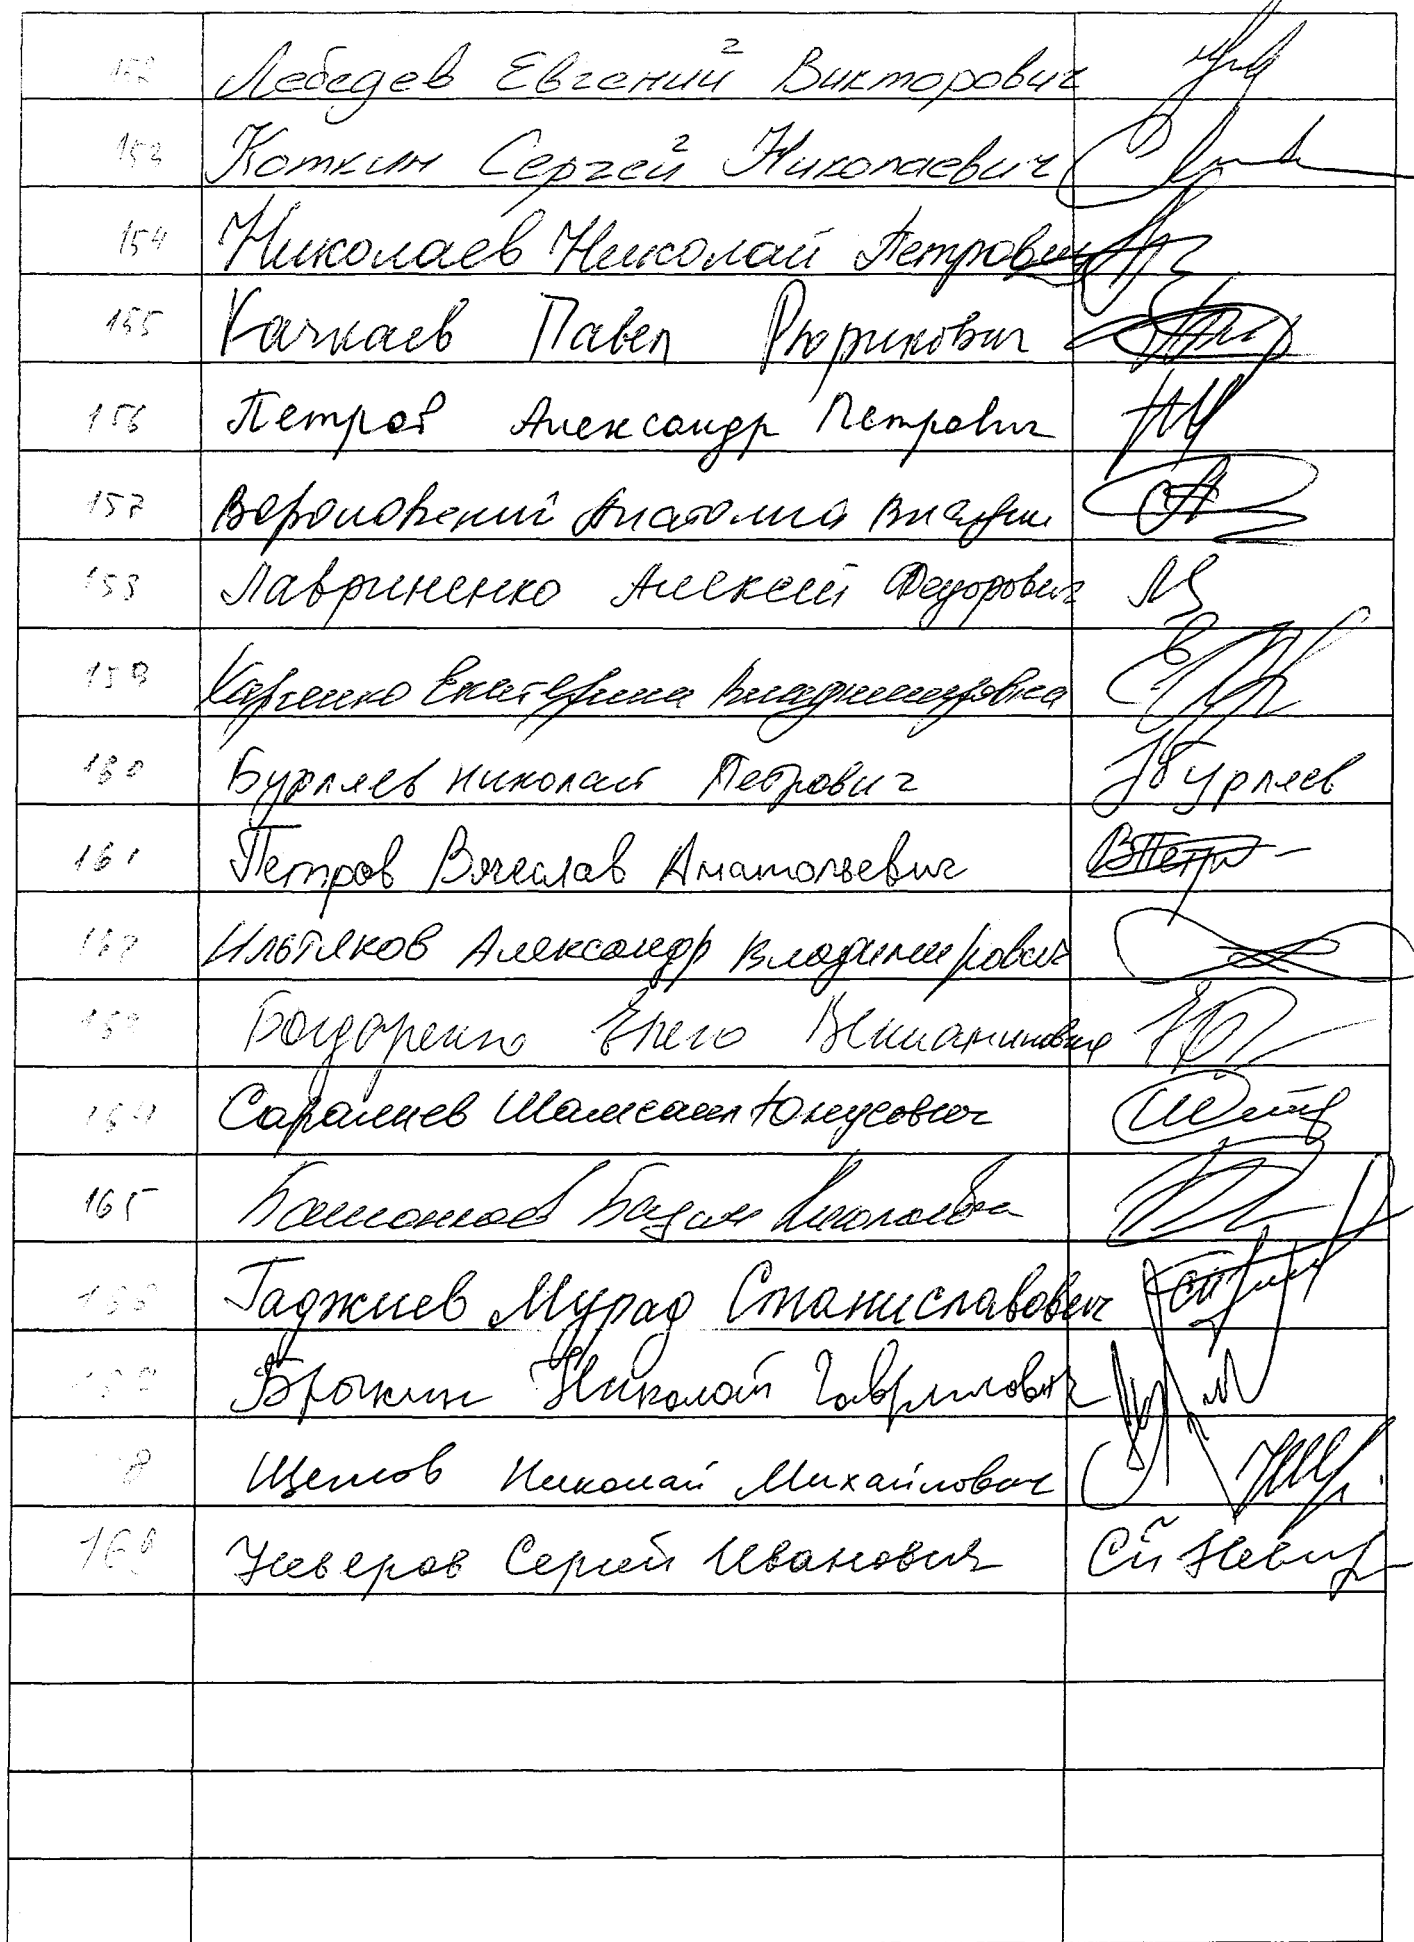 152 Лебедев Евгений Викторович
153 Коткин Сергей Николаевич
154 Николаев Николай Петрович
155 Качкаев Павел Рюрикович
156 Петров Александр Петрович
157 Вороновский Анатолий
158 Лавриненко Алексей Федорович
159 Харченко Екатерина Владимировна
160 Бурляев Николай Петрович Бурляев
161 Петров Вячеслав Анатольевич
162 Ильтяков Александр Владимирович
163 Бондаренко Елена Вениаминовна
164 Саралиев Шамсаил Юнусович
165 Николаевна
166 Гаджиев Мурад Станиславович
Брыкин Николай Гаврилович
8 Щеглов Николай Михайлович
169 Неверов Сергей Иванович